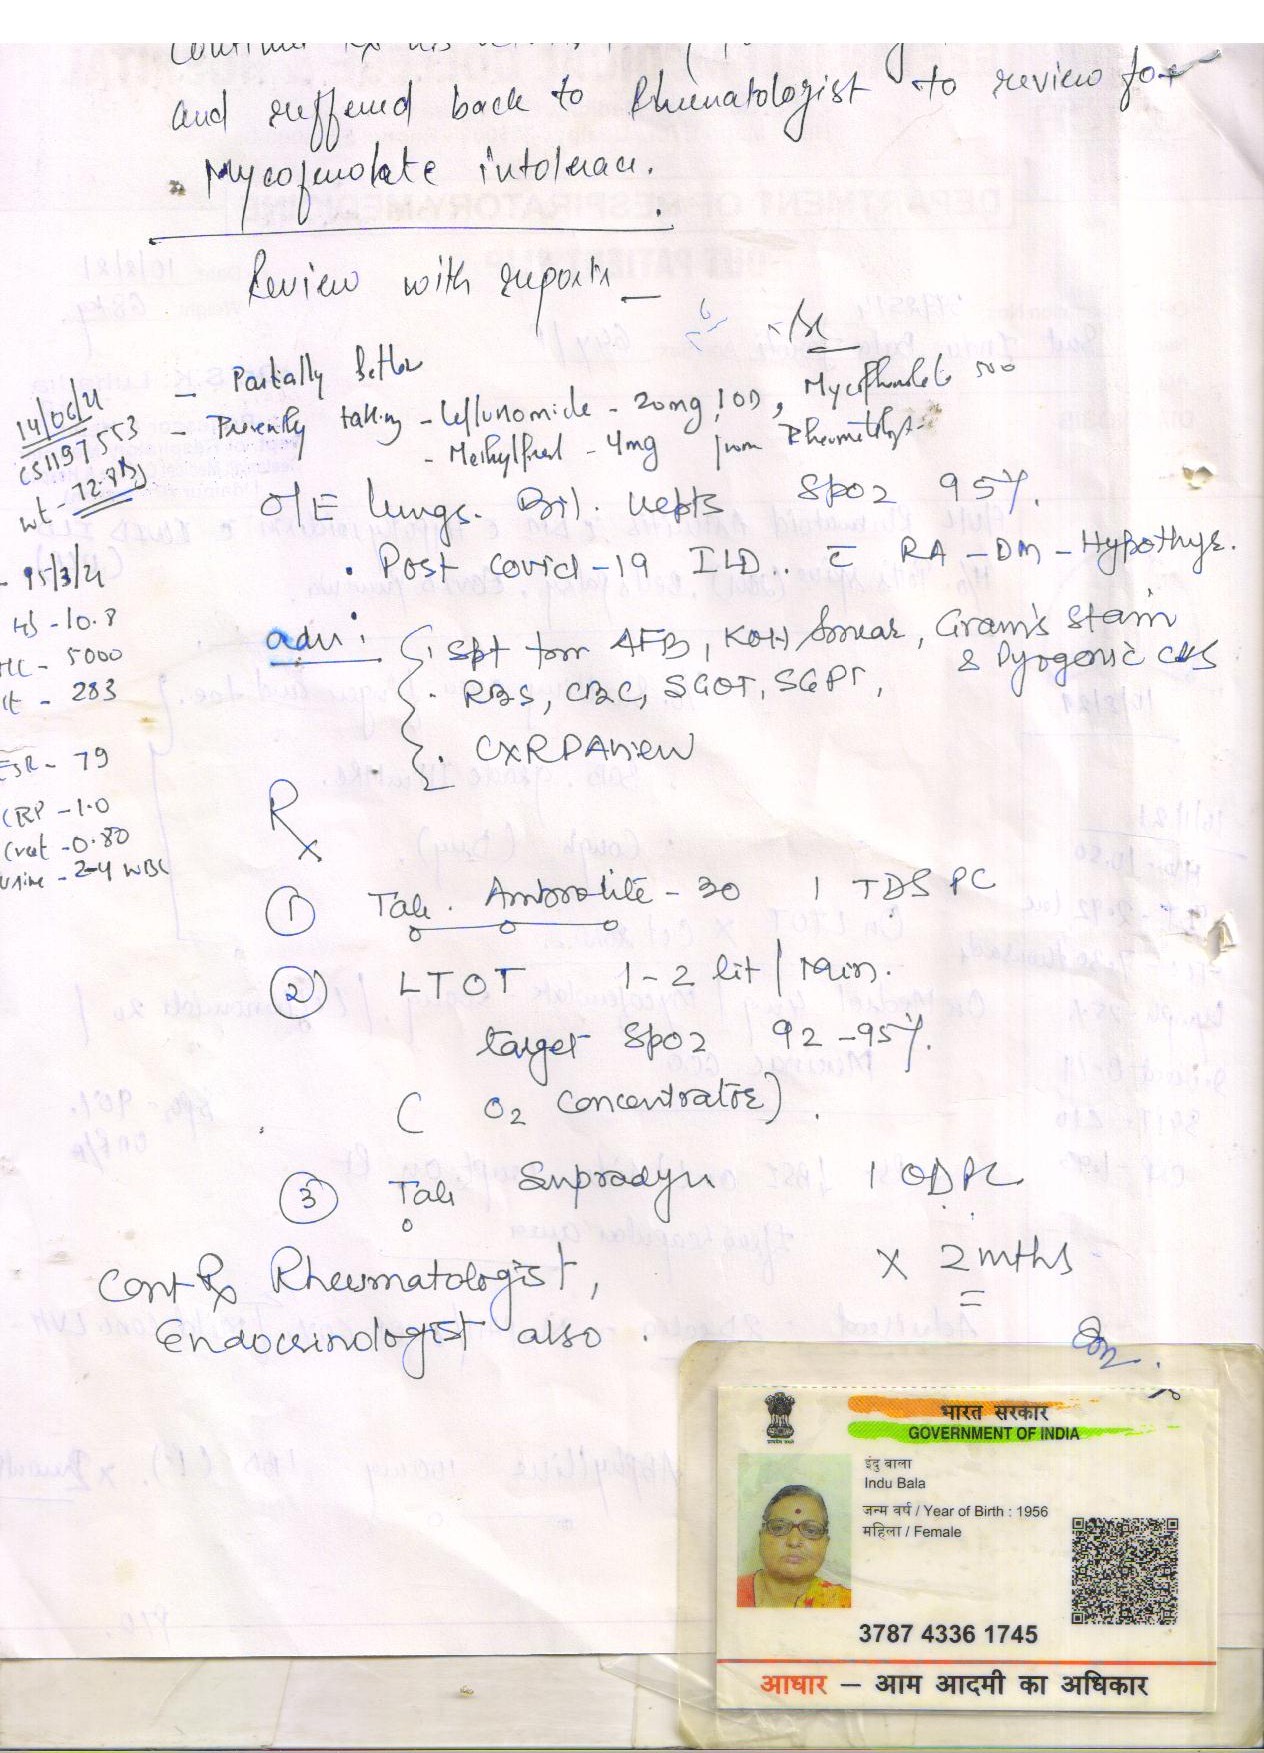 and reffered back to Rheumatologist to review for
Mycofenolate intolerace.
Review with reports
14/06/21
CS1197553
wt - 72.8kg
- Partially better
- Presently taking - Leflunomide - 20mg 1OD, Mycophenolate 500
- Methylpred - 4mg from Rheumatologist
O/E lungs. Bil. crepts SpO2 95%.
. Post covid-19 ILD. c̄ RA - DM - Hypothyr.
- 15/3/21
Hb - 10.8
5000
283
ESR - 79
CRP - 1.0
Creat - 0.80
Urine - 2-4 WBC
adv:
. Spt for AFB, KOH Smear, Gram's stain
& Pyogenic C/S
. RBS, CBC, SGOT, SGPT,
. CXR PA view
Rx
① Tab. Ambrolite - 30 1 TDS PC
② LTOT 1-2 lit/min.
target SpO2 92-95%.
( O2 concentrator).
③ Tab Supradyn 1 OD PC
x 2 mths
Cont Rx Rheumatologist,
Endocrinologist also.
भारत सरकार
GOVERNMENT OF INDIA
इंदु बाला
Indu Bala
जन्म वर्ष / Year of Birth : 1956
महिला / Female
3787 4336 1745
आधार – आम आदमी का अधिकार